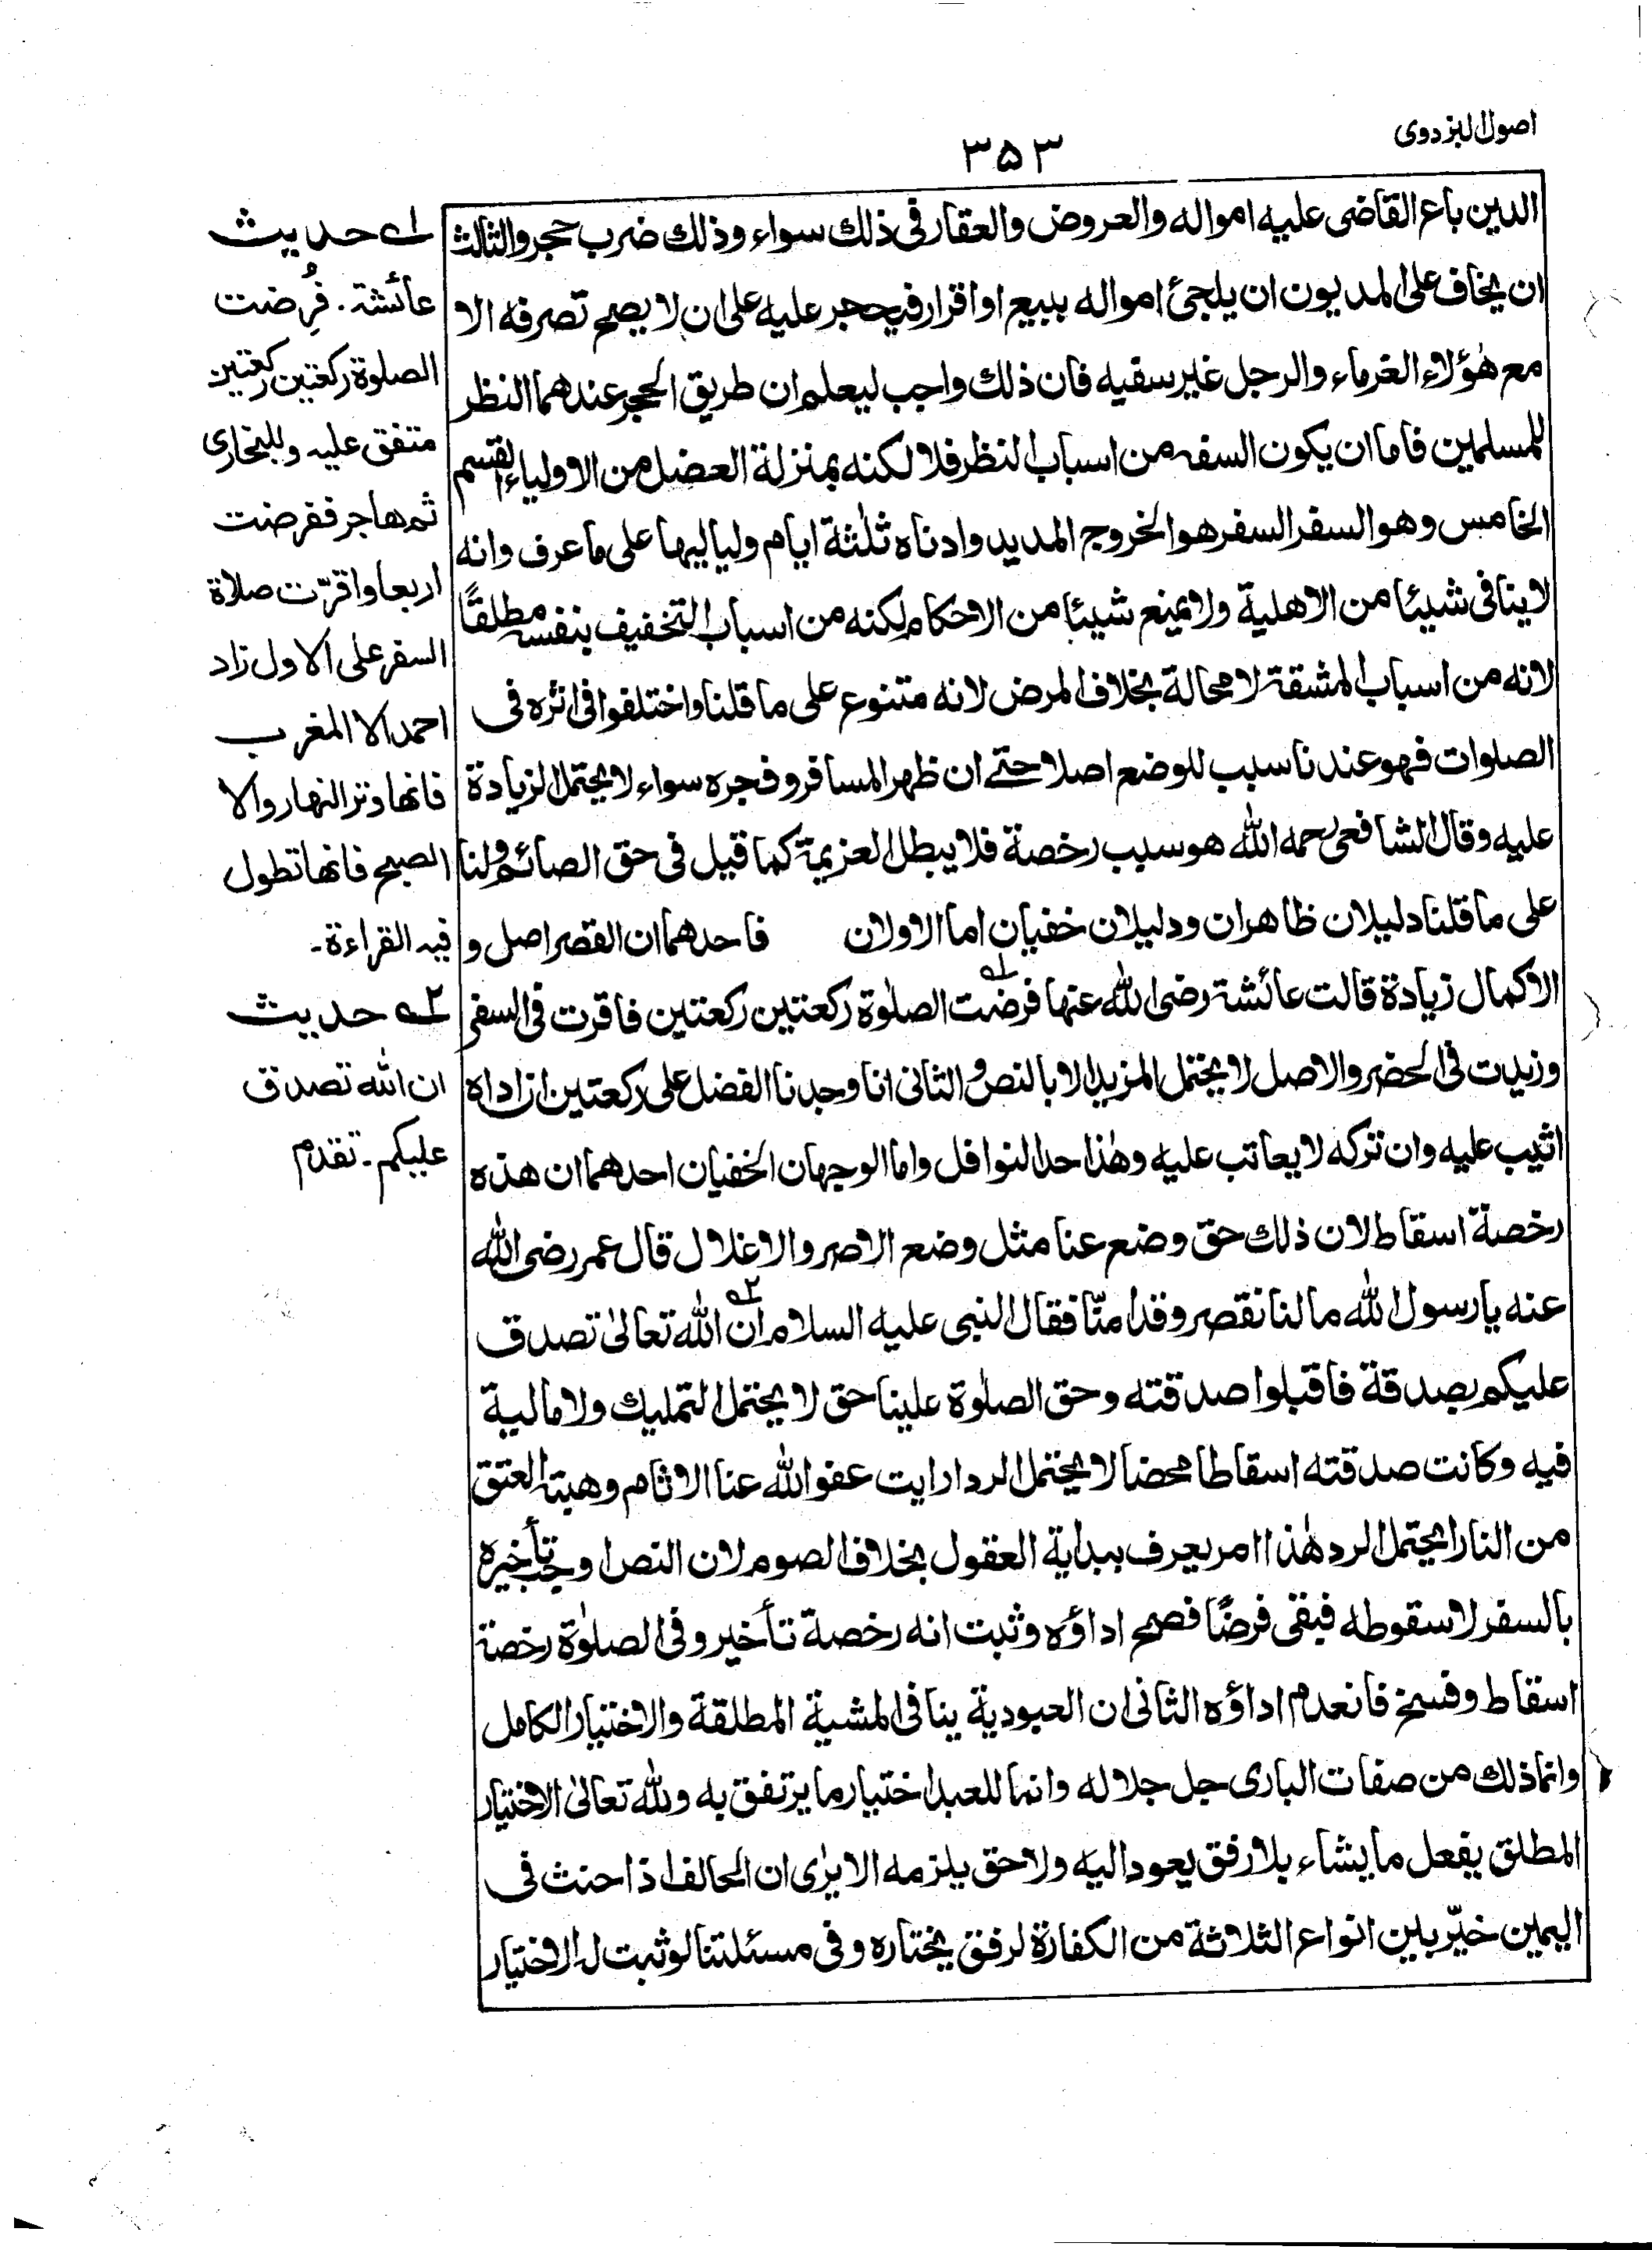 اصول البزدوی
۳۵۳
الدين باع القاضى عليه امواله والعروض والعقار فى ذلك سواء وذلك ضرب حجر والثالث
ان يخاف على المديون ان يلجئ امواله ببيع او اقرار فيحجر عليه على ان لا يصح تصرفه الا
مع هؤلاء الغرماء والرجل غير سفيه فان ذلك واجب ليعلم ان طريق الحجر عندهما النظر
للمسلمين فاما ان يكون السفه من اسباب النظر فلا لكنه بمنزلة العضل من الاولياء القسم
الخامس وهو السفر السفر هو الخروج المديد وادناه ثلٰثة ايام ولياليها على ما عرف وانه
لا ينافى شيئا من الاهلية ولا يمنع شيئا من الاحكام لكنه من اسباب التخفيف بنفسه مطلقًا
لانه من اسباب المشقة لا محالة بخلاف المرض لانه متنوع على ما قلنا واختلفوا فى اثره فى
الصلوات فهو عندنا سبب للوضع اصلا حتے ان ظهر المسافر وفجره سواء لا يحتمل الزيادة
عليه وقال الشافعى رحمه الله هو سبب رخصة فلا يبطل العزيمة كما قيل فى حق الصائم ولنا
على ما قلنا دليلان ظاهران ودليلان خفيان اما الاولان فاحدهما ان القصر اصل و
الاكمال زيادة قالت عائشة رضى الله عنها ١ے فرضت الصلٰوة ركعتين ركعتين فاقرت فى السفر
وزيدت فى الحضر والاصل لا يحتمل المزيد الا بالنص والثانى انا وجدنا الفضل على ركعتين ان اداه
اثيب عليه وان تركه لا يعاتب عليه وهٰذا حد النوافل واما الوجهان الخفيان احدهما ان هذه
رخصة اسقاط لان ذلك حق وضع عنا مثل وضع الاصر والاغلال قال عمر رضى الله
عنه يا رسول الله ما لنا نقصر وقد امنّا فقال النبى عليه السلام ٢ے ان الله تعالىٰ تصدق
عليكم بصدقة فاقبلوا صدقته وحق الصلٰوة علينا حق لا يحتمل التمليك ولا مالية
فيه وكانت صدقته اسقاطا محضا لا يحتمل الرد ارايت عفو الله عنا الاثام وهبته العتق
من النار ايحتمل الرد هٰذا امر يعرف ببداية العقول بخلاف الصوم لان النص اوجب تأخيره
بالسفر لا سقوطه فبقى فرضًا فصح اداؤه وثبت انه رخصة تأخير وفى الصلٰوة رخصة
اسقاط وفسخ فانعدم اداؤه الثانى ان العبودية ينافى المشية المطلقة والاختيار الكامل
وانما ذلك من صفات البارى جل جلاله وانما للعبد اختيار ما يرتفق به ولله تعالىٰ الاختيار
المطلق يفعل ما يشاء بلا رفق يعود اليه ولا حق يلزمه الا يرٰى ان الحالف اذا حنث فى
اليمين خيّر بين انواع الثلاثة من الكفارة لرفق يختاره وفى مسئلتنا لو ثبت له الاختيار
١ے حديث
عائشة. فُرِضت
الصلوة ركعتين ركعتين
متفق عليه وللبخارى
ثم هاجر ففرضت
اربعا واقرّت صلاة
السفر على الاول زاد
احمد الا المغرب
فانها وتر النهار والا
الصبح فانها تطول
فيه القراءة۔
٢ے حديث
ان الله تصدق
عليكم۔ تقدم